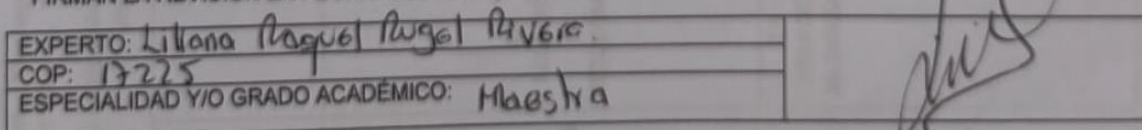 EXPERTO: Liliana Raquel Rugel Rivera.
COP: 17225
ESPECIALIDAD Y/O GRADO ACADÉMICO: Maestra